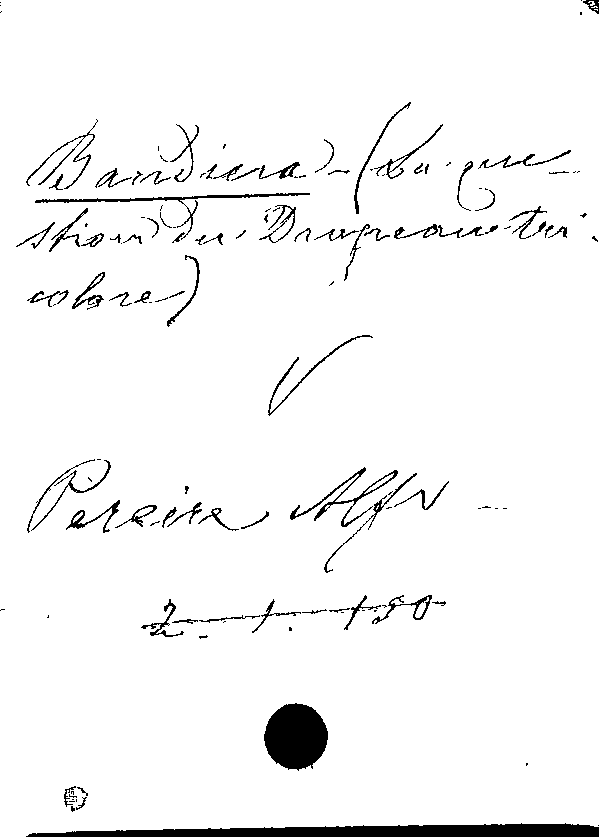 Bandiera - (La que-
stion du Drapeau tri-
colore)
V
Pereire Alfr -
2. 1. 130